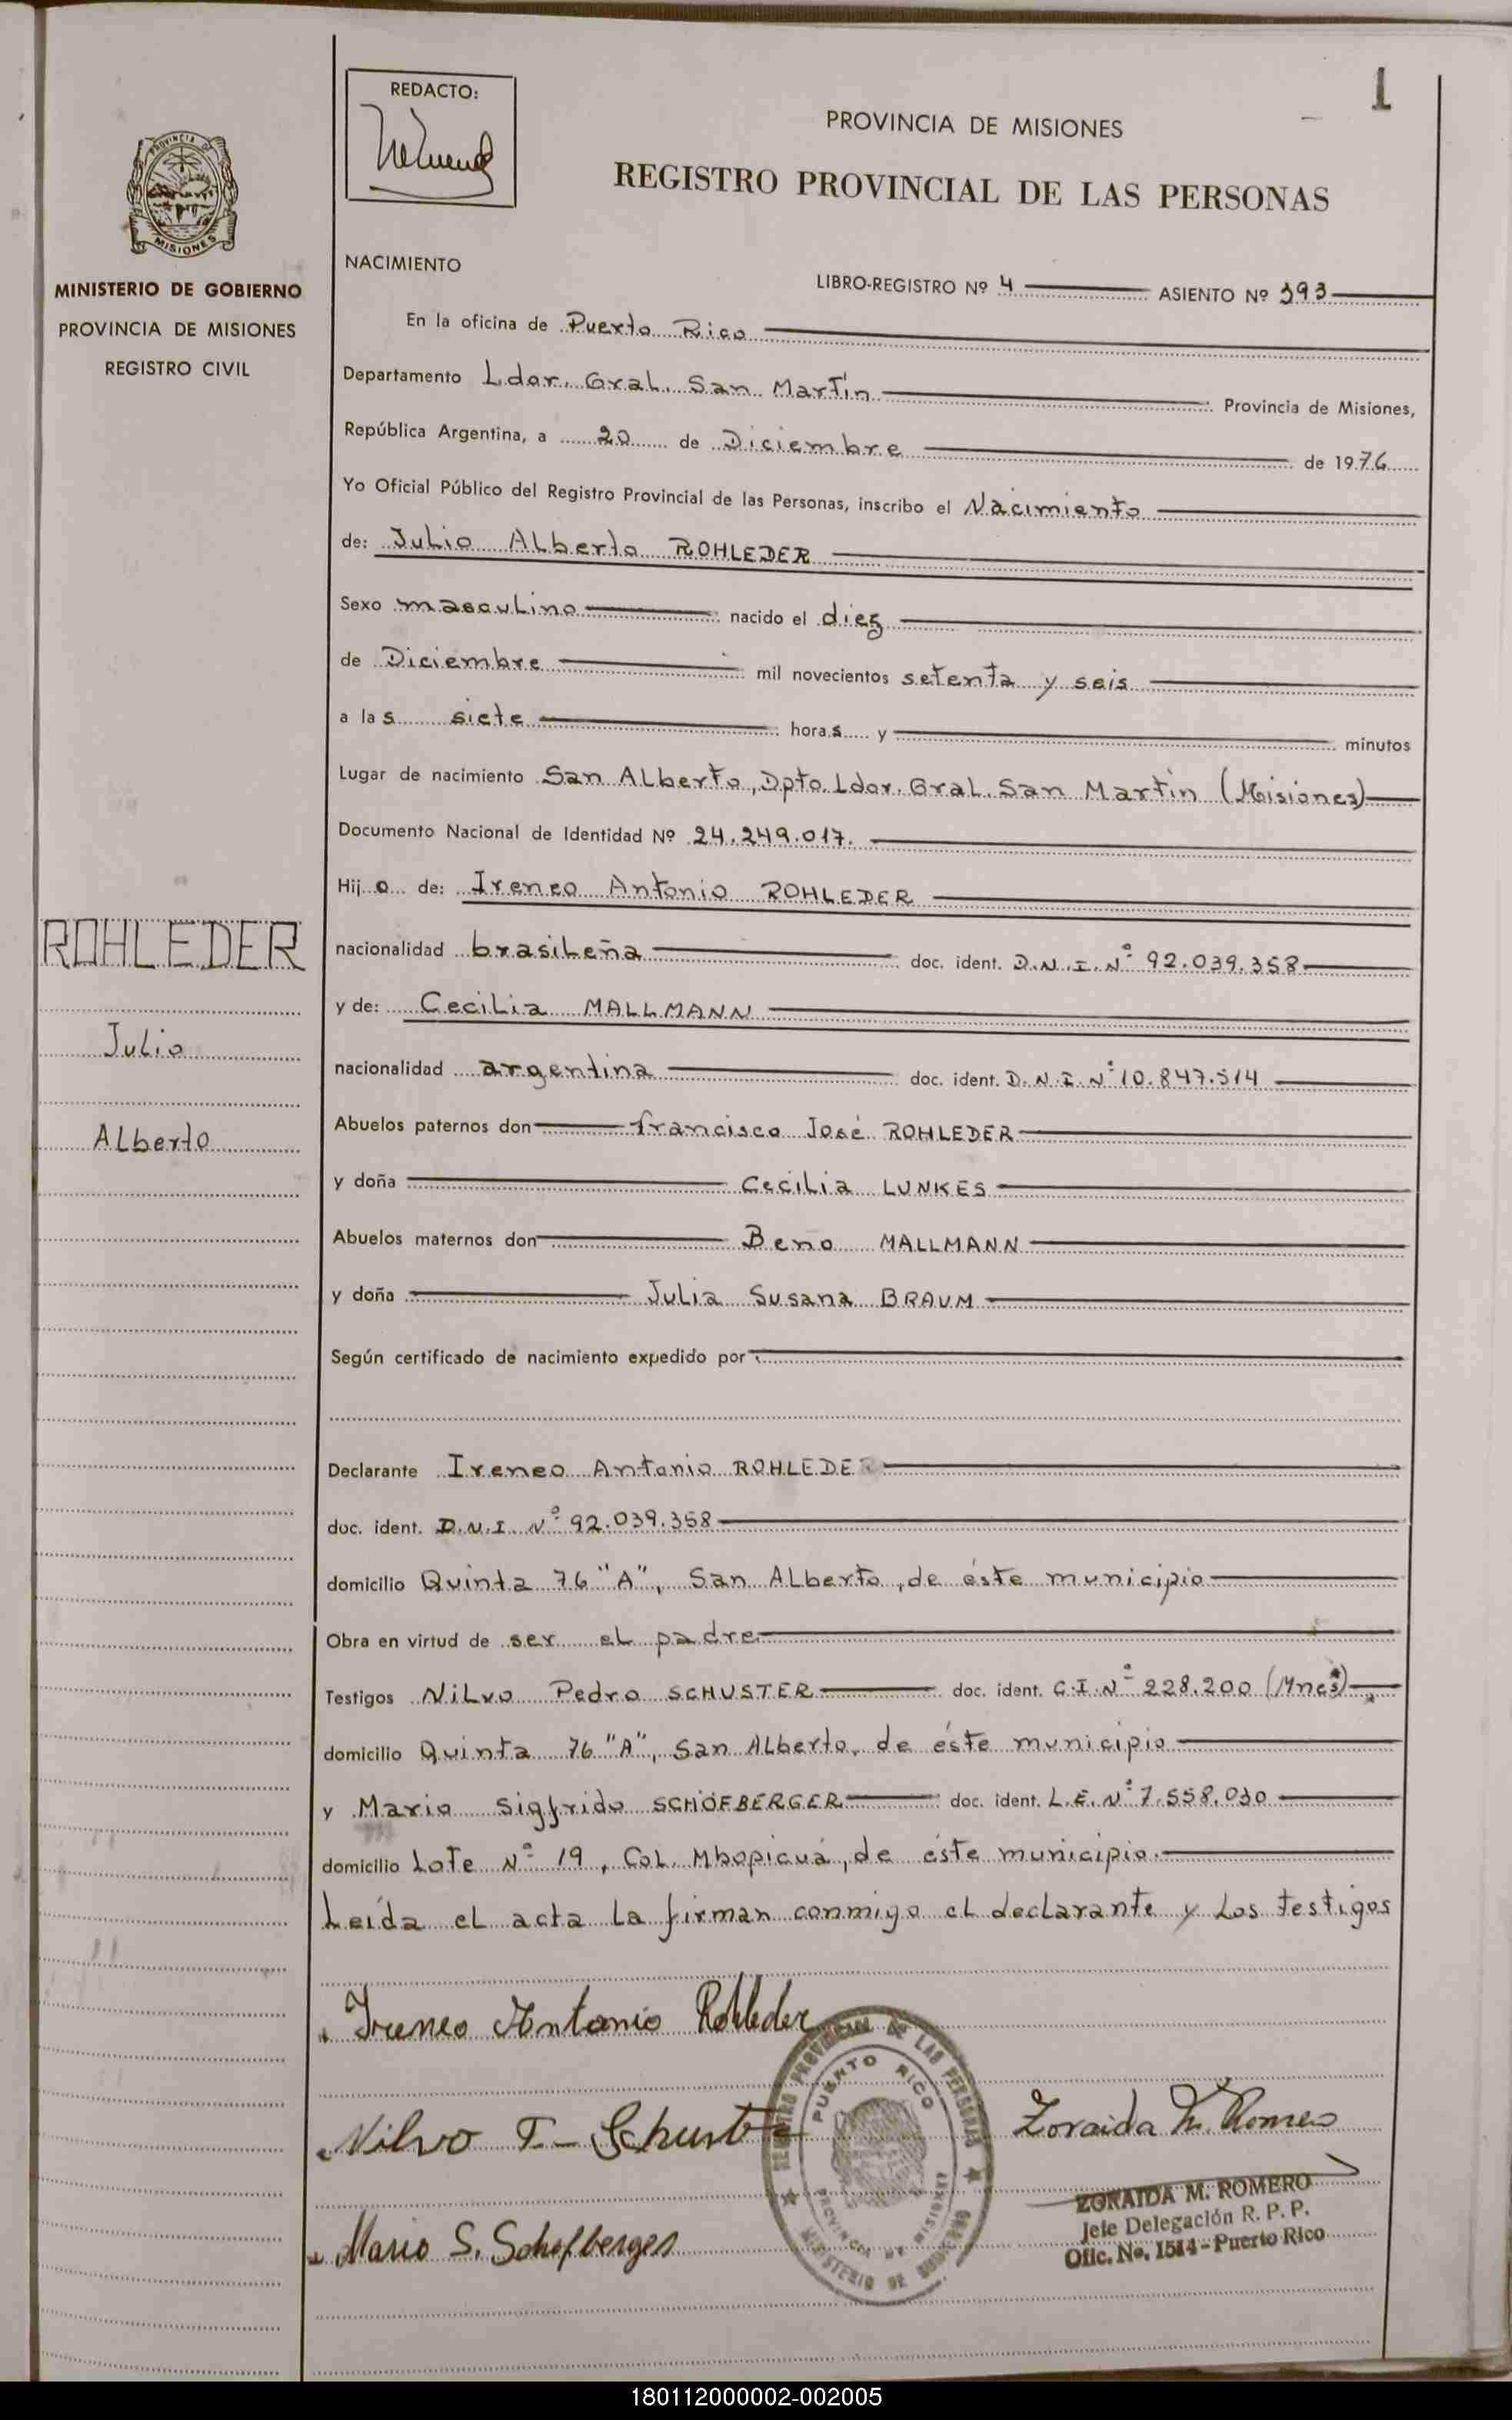 1
REDACTO:
PROVINCIA DE MISIONES
REGISTRO PROVINCIAL DE LAS PERSONAS
PROVINCIA DE
MISIONES
MINISTERIO DE GOBIERNO
PROVINCIA DE MISIONES
REGISTRO CIVIL
NACIMIENTO
LIBRO-REGISTRO Nº 4 ASIENTO Nº 393
En la oficina de Puerto Rico
Departamento Ldor. Gral. San Martín Provincia de Misiones,
República Argentina, a 20 de Diciembre de 1976
Yo Oficial Público del Registro Provincial de las Personas, inscribo el Nacimiento
de: Julio Alberto ROHLEDER
Sexo masculino nacido el diez
de Diciembre mil novecientos setenta y seis
a las siete horas y minutos
Lugar de nacimiento San Alberto, Dpto. Ldor. Gral. San Martín (Misiones)
Documento Nacional de Identidad Nº 24.249.017.
Hijo de: Ireneo Antonio ROHLEDER
ROHLEDER
nacionalidad brasileña doc. ident. D.N.I. Nº 92.039.358
y de: Cecilia MALLMANN
Julio
nacionalidad argentina doc. ident. D.N.I. Nº 10.847.514
Alberto
Abuelos paternos don francisco José ROHLEDER
y doña Cecilia LUNKES
Abuelos maternos don Beno MALLMANN
y doña Julia Susana BRAUM
Según certificado de nacimiento expedido por
Declarante Ireneo Antonio ROHLEDER
doc. ident. D.N.I. Nº 92.039.358
domicilio Quinta 76 "A", San Alberto, de éste municipio
Obra en virtud de ser el padre
Testigos Nilvo Pedro SCHUSTER doc. ident. C.I. Nº 228.200 (Mnes)
domicilio Quinta 76 "A", San Alberto, de éste municipio
y Mario Sigfrido SCHÖFBERGER doc. ident. L.E. Nº 7.558.030
domicilio Lote Nº 19, Col. Mbopicuá, de éste municipio.
Leída el acta la firman conmigo el declarante y los testigos
Ireneo Antonio Rohleder
REGISTRO PROVINCIAL DE LAS PERSONAS
PUERTO RICO
PROVINCIA DE MISIONES
MINISTERIO DE GOBIERNO
Zoraida M. Romero
ZORAIDA M. ROMERO
Jefe Delegación R. P. P.
Ofic. No. 1514 - Puerto Rico
Mario S. Schofberger
180112000002-002005